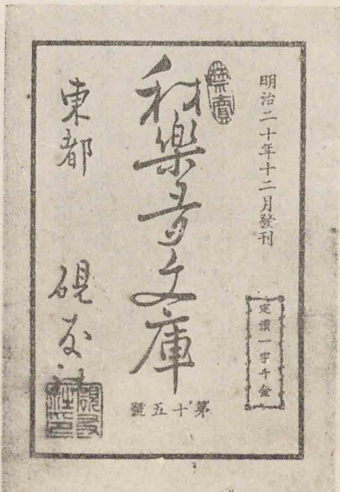 明治二十年十二月發刊
定價一字千金
禁賣
我樂多文庫
第十五號
東都
硯友社
硯友社印